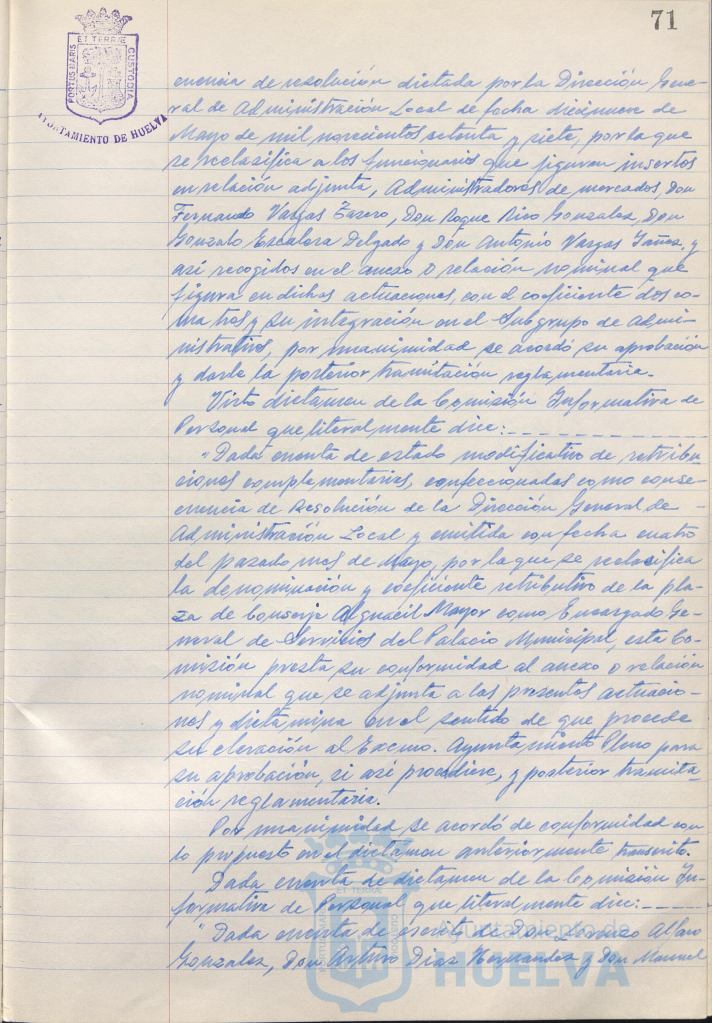 71
PORTUS MARIS
ET TERRAE
CUSTODIA
AYUNTAMIENTO DE HUELVA
cuencia de resolución dictada por la Dirección Gene-
ral de Administración Local de fecha diecinueve de
Mayo de mil novecientos setenta y siete, por la que
se reclasifica a los funcionarios que figuran insertos
en relación adjunta, Administradores de mercados, Don
Fernando Vargas Zarero, Don Roque Rico Gonzalez, Don
Gonzalo Escalera Delgado y Don Antonio Vargas Yañez, y
así recogidos en el anexo o relación nominal que
figura en dichas actuaciones, con el coeficiente dos co-
ma tres y su integración en el Subgrupo de Admini-
nistrativos, por unanimidad se acordó su aprobación
y darle la posterior tramitación reglamentaria.
Visto dictamen de la Comisión Informativa de
Personal que literalmente dice:_ _ _ _ _ _ _ _ _ _
"Dada cuenta de estado modificativo de retribu-
ciones complementarias, confeccionadas como conse-
cuencia de Resolución de la Dirección General de -
Administración Local y emitida con fecha cuatro
del pasado mes de Mayo, por la que se reclasifica
la denominación y coeficiente retributivo de la pla-
za de Conserje Alguacil Mayor como Encargado Ge-
neral de Servicios del Palacio Municipal, esta Co-
misión presta su conformidad al anexo o relación
nominal que se adjunta a las presentes actuacio-
nes y dictamina en el sentido de que procede
su elevación al Excmo. Ayuntamiento Pleno para
su aprobación, si así procediere, y posterior tramita-
ción reglamentaria.
Por unanimidad se acordó de conformidad con
lo propuesto en el dictamen anteriormente transcrito.
Dada cuenta de dictamen de la Comisión In-
formativa de Personal que literalmente dice:_ _ _ _ _
"Dada cuenta de escrito de Don Lorenzo Alfaro
Gonzalez, Don Arturo Diaz Hernandez y Don Manuel
Ayuntamiento de
HUELVA